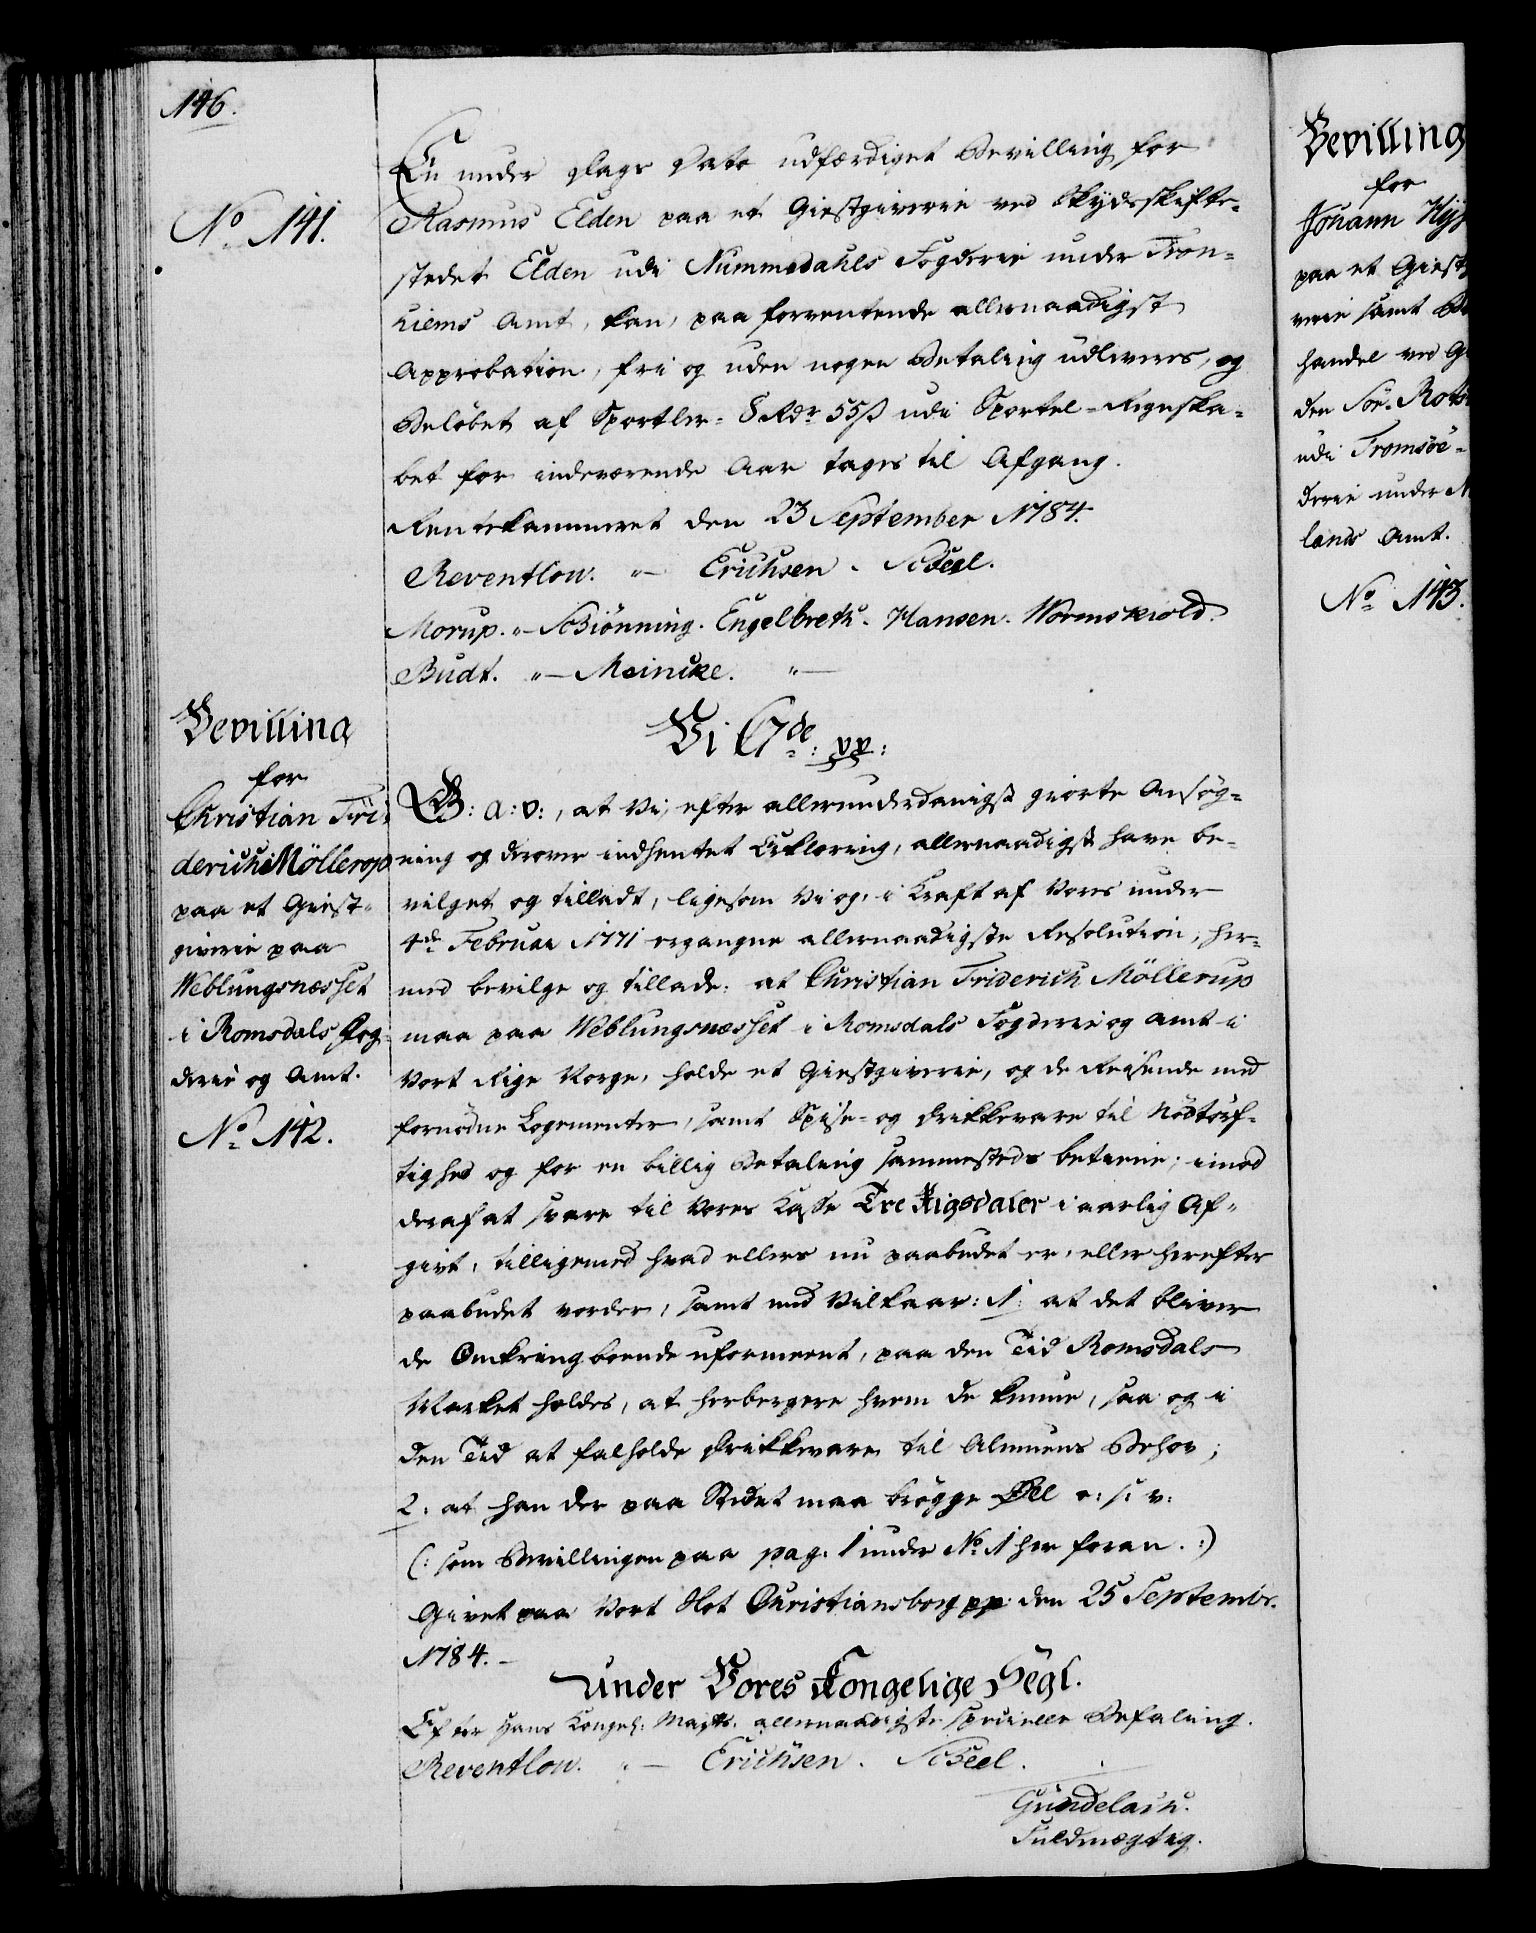 146.
No 141.
En under Dags Dato udfærdiget Bevilling for
Rasmus Elden paa et Giestgiverie ved Skydsskifte-
stedet Elden udi Nummedahls Fogderie under Tron-
hiems Amt, kan, paa forventende allernaadigst
Approbation, fri og uden nogen Betaling udleveres, og
Beløbet af Sportler = 8 Rdr 55 ß udi Sportel-Regnska-
bet for indeværende Aar tages til Afgang.
Rentekammeret den 23 September 1784.
Reventlow. " — Erichsen. Scheel.
Morup. " - Schiönning. Engelbreth. Hansen. Wormskiold.
Budt. " — Meincke. " —
Bevilling
for
Christian Fri-
derich Möllerop
paa et Giest-
giverie paa
Weblungsnæsset
i Romsdals Fog-
derie og Amt.
No 142.
Vi C7de: pp:
G: A: V:, at Vi, efter allerunderdanigst giorte Ansøg-
ning og derover indhentet Erklæring, allernaadigst have be-
vilget og tilladt, ligesom Vi og, i Kraft af Vores under
4de Februar 1771 ergangne allernaadigste Resolution, her-
med bevilge og tillade: at Christian Friderich Möllerup
maa paa Weblungsnæsset i Romsdals Fogderie og Amt i
Vort Rige Norge, holde et Giestgiverie, og de Reisende med
fornødne Logementer, samt Spise- og Drikkevare til Nødtørf-
tighed og for en billig Betaling sammesteds betiene; imod
deraf at svare til Vores Kasse Tre Rigsdaler i aarlig Af-
givt, tilligemed hvad ellers nu paabudet er, eller herefter
paabudet vorder, samt med Vilkaar: 1: at det bliver
de Omkringboende uformeent, paa den Tid Romsdals
Market holdes, at herbergere hvem de kunne, saa og i
den Tid at falholde Drikkevare til Almuens Behov;
2: at han der paa Stedet maa brøgge Øll o: s: v:
(: som Bevillingen paa pag. 1 under No 1 her foran. :)
Givet paa Vort Slot Christiansborg pp: den 25 Septembr.
1784. -
Under Vores Kongelige Segl.
Efter Hans Kongel: Majts. allernaadigste specielle Befaling.
Reventlow. " — Erichsen. Scheel.
Gündelach.
Fuldmægtig.
Bevilling
for
Johann
paa et Giest
verie samt
handel ved
den Söe-
udi Tromsöe-
derie under
lands Amt.
No 143.